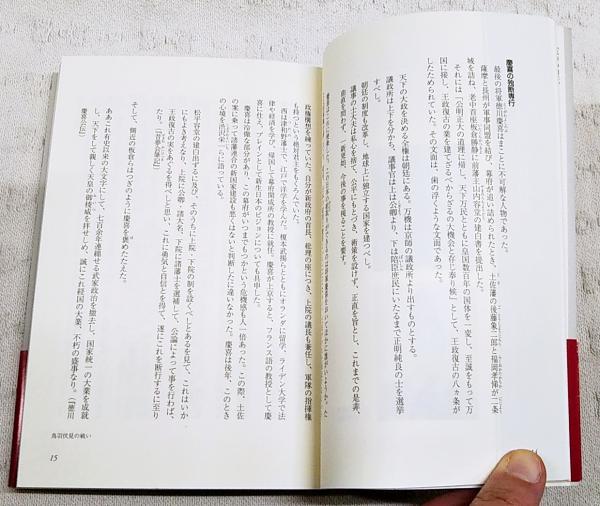 慶喜の独断専行
最後の将軍徳川慶喜はまことに不可解な人物であった。
薩摩と長州が軍事同盟を結び、幕府が追い詰められたとき、土佐藩の後藤象二郎と福岡孝悌が二条
城を訪ね、老中首座板倉勝静に前藩主山内容堂の建白書を提出した。
それには「公明正大の道理に帰し、天下万民とともに皇国数百年の国体を一変し、至誠をもって万
国に接し、王政復古の業を建てざるべからざるの大機会と存じ奉り候」として、王政復古の八ヵ条が
したためられていた。その文面は、歯の浮くような文面であった。
天下の大政を決める全権は朝廷にある。万機は京師の議政所より出すものとする。
議政所は上下を分かち、議事官は上は公卿より、下は陪臣庶民にいたるまで正明純良の士を選挙
すべし。
朝廷の制度も改事し、地球上に独立する国家を建つべし。
議事の士大夫は私心を捨て、公平にもとづき、術策を設けず、正直を旨とし、これまでの是非、
曲直を問わず、一新更始、今後の事を視ることを要す。
政権構想を練っていた。自分が新政府の首長、総理の座につき、上院の議長も兼任し、軍隊の指揮権
も持つという絶対君主をもくろんでいた。
西は津和野藩士で、江戸で洋学を学んだ。榎本武揚らとともにオランダに留学、ライデン大学で法
律や経済を学び、帰国して幕府開成所の教授に就任。慶喜が上京すると、フランス語の教授として慶
喜に仕え、ブレインとして新生日本のビジョンについても具申した。
慶喜は冷徹な部分があり、この幕府がいつまでもつかという危機感も人一倍あった。この際、土佐
の案に乗って諸藩連合の新国家建設も悪くはないと判断したに違いなかった。慶喜は後年、このとき
の心境を渋沢栄一に語っている。
松平容堂の建白出するに及び、そのうちに上院、下院の制を設くべしとあるを見て、これはいか
にもよき考えなり、上院に公卿・諸大名、下院に諸藩士を選補して、公論によって事を行わば、
王政復古の実をあぐるを得べしと思い、これに勇気と自信とを得て、遂にこれを断行するに至り
たり。(『昔夢会筆記』)
そして、側近の板倉らはつぎのように慶喜を褒めたたえた。
ああこれ有史以来の大文字にして、七百余年連綿せる武家政治を撤去し、国家統一の大業を成就
し、天下をして親しく天皇の御稜威を拝せしめ、誠にこれ経国の大業、不朽の盛事なり。(『徳川
慶喜公伝』)
鳥羽伏見の戦い
15